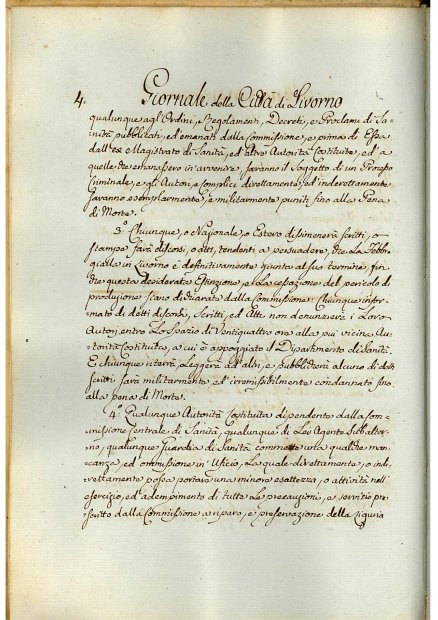 4. Giornale della Città di Livorno
qualunque agl'Ordini, e Regolamenti, Decreti, e Proclami di Sa-
nità pubblicati, ed emanati dalla Commissione, e prima di Essa
dall'ex Magistrato di Sanità, ed altre Autorità Costituite, ed a
quelle che emanassero in avvenire, saranno il Soggetto di un Processo
Criminale, e gli Autori, e Complici direttamente, ed indirettamente
saranno esemplarmente, e militarmente puniti fino alla Pena
di Morte.
3.° Chiunque, o Nazionale, o Estero disseminerà scritti, o
stampe farà discorsi, o atti, tendenti a persuadere, che La Febbre
gialla in Livorno è definitivamente giunta al suo termine, fin
che questa desiderata Estinzione, e La cessazione del pericolo di
produzione siano dichiarate dalla Commissione: Chiunque infor-
mato di detti discorsi, Scritti, ed Atti non denunzierà i Loro
Autori, entro Lo spazio di Ventiquattro ore alla più vicina Au-
torità Costituita, a cui è appoggiato il Dipartimento di Sanità.
E chiunque riterrà, Leggerà ad altri, e pubblicherà alcuno di detti
Scritti sarà militarmente, ed irremissibilmente condannato fino
alla pena di Morte.
4.° Qualunque Autorità Costituita dipendente dalla Com-
missione Centrale di Sanità, qualunque di Lei Agente Subalter-
no, qualunque Guardia di Sanità commetta una qualche man-
canza, ed ommissione in Ufizio, La quale direttamente, o indi-
rettamente possa portare una minore esattezza, o attività nell'
esercizio, ed adempimento di tutte Le precauzioni, e servizio pre-
scritto dalla Commissione a riparo, e preservazione della Liguria